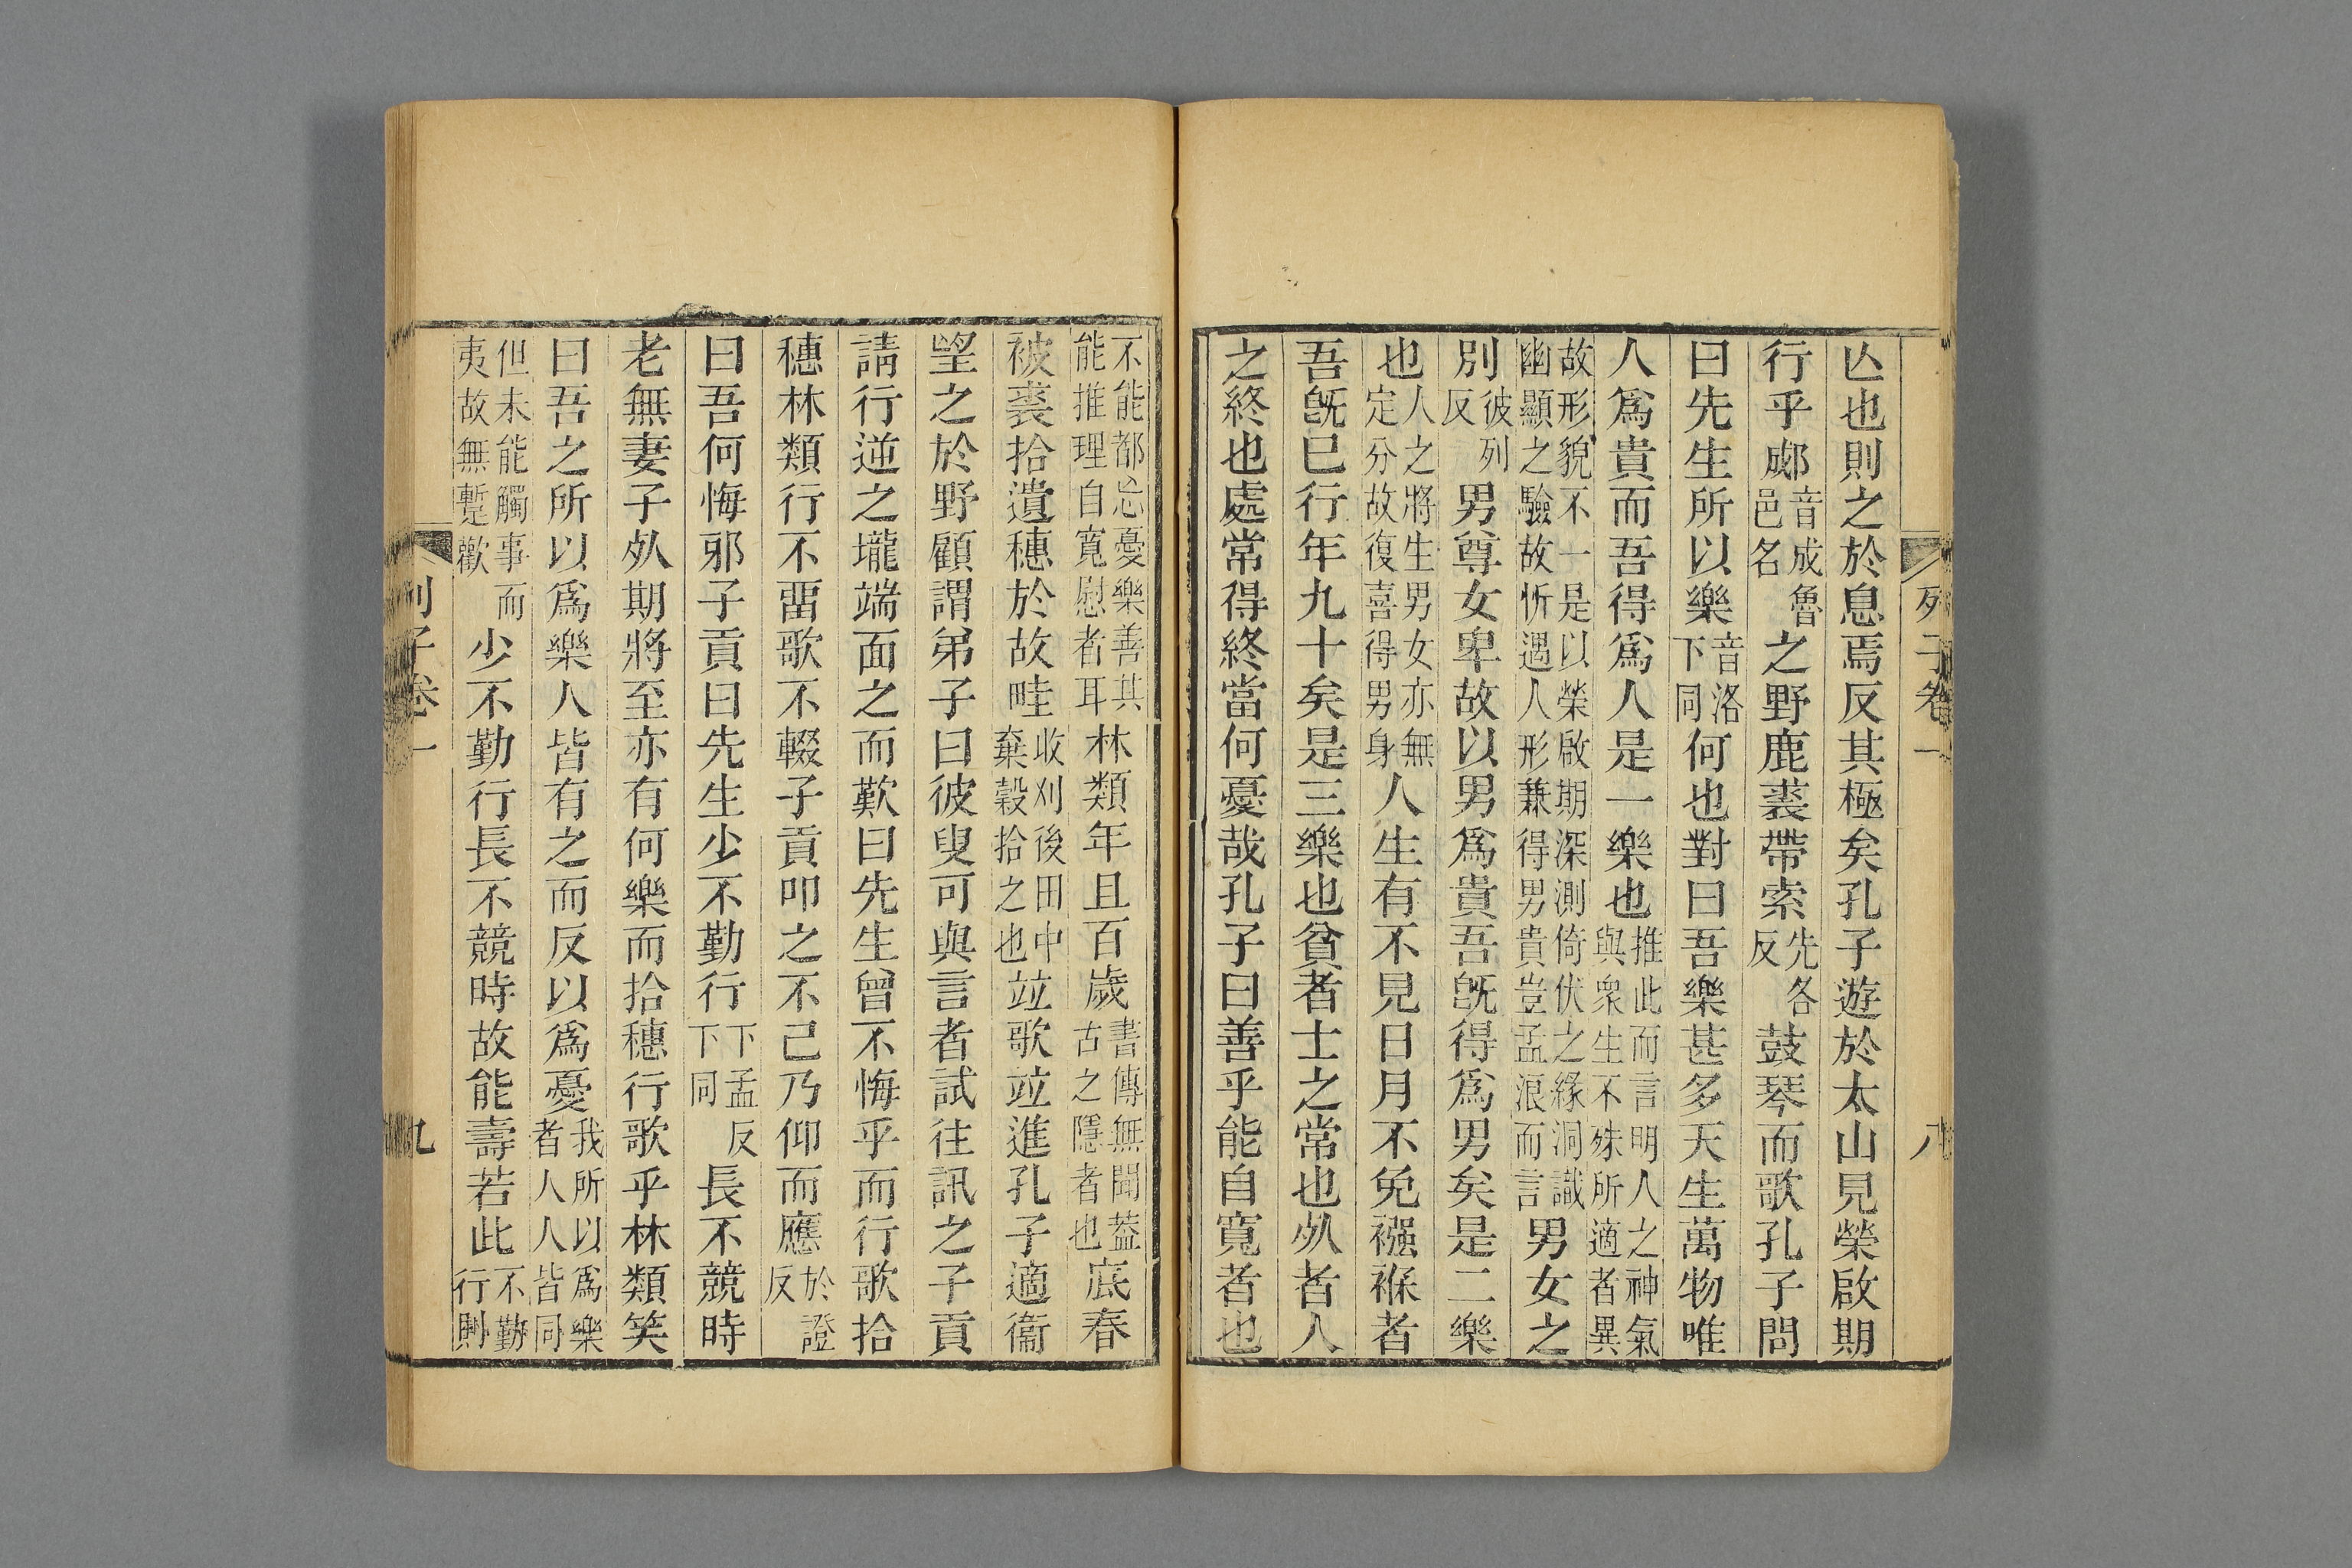 列子卷一 八
亾也則之於息焉反其極矣孔子遊於太山見榮啟期
行乎郕音成魯邑名之野鹿裘帶索先各反鼓琴而歌孔子問
曰先生所以樂音洛下同何也對曰吾樂甚多天生萬物唯
人爲貴而吾得爲人是一樂也推此而言明人之神氣與衆生不殊所適者異
故形貌不一是以榮啟期深測倚伏之緣洞識幽顯之驗故忻遇人形兼得男貴豈孟浪而言男女之
別彼列反男尊女卑故以男爲貴吾旣得爲男矣是二樂
也人之將生男女亦無定分故復喜得男身人生有不見日月不免襁褓者
吾旣已行年九十矣是三樂也貧者士之常也㱙者人
之終也處常得終當何憂哉孔子曰善乎能自寬者也
不能都忘憂樂善其能推理自寬慰者耳林類年且百歲書傳無聞葢古之隱者也底春
被裘拾遺穗於故畦收刈後田中棄穀拾之也竝歌竝進孔子適衞
望之於野顧謂弟子曰彼叟可與言者試往訊之子貢
請行逆之壠端面之而歎曰先生曾不悔乎而行歌拾
穗林類行不畱歌不輟子貢叩之不已乃仰而應於證反
曰吾何悔邪子貢曰先生少不勤行下孟反下同長不競時
老無妻子㱙期將至亦有何樂而拾穗行歌乎林類笑
曰吾之所以爲樂人皆有之而反以爲憂我所以爲樂者人人皆同
但未能觸事而夷故無蹔歡少不勤行長不競時故能壽若此不勤行則
列子卷一 九